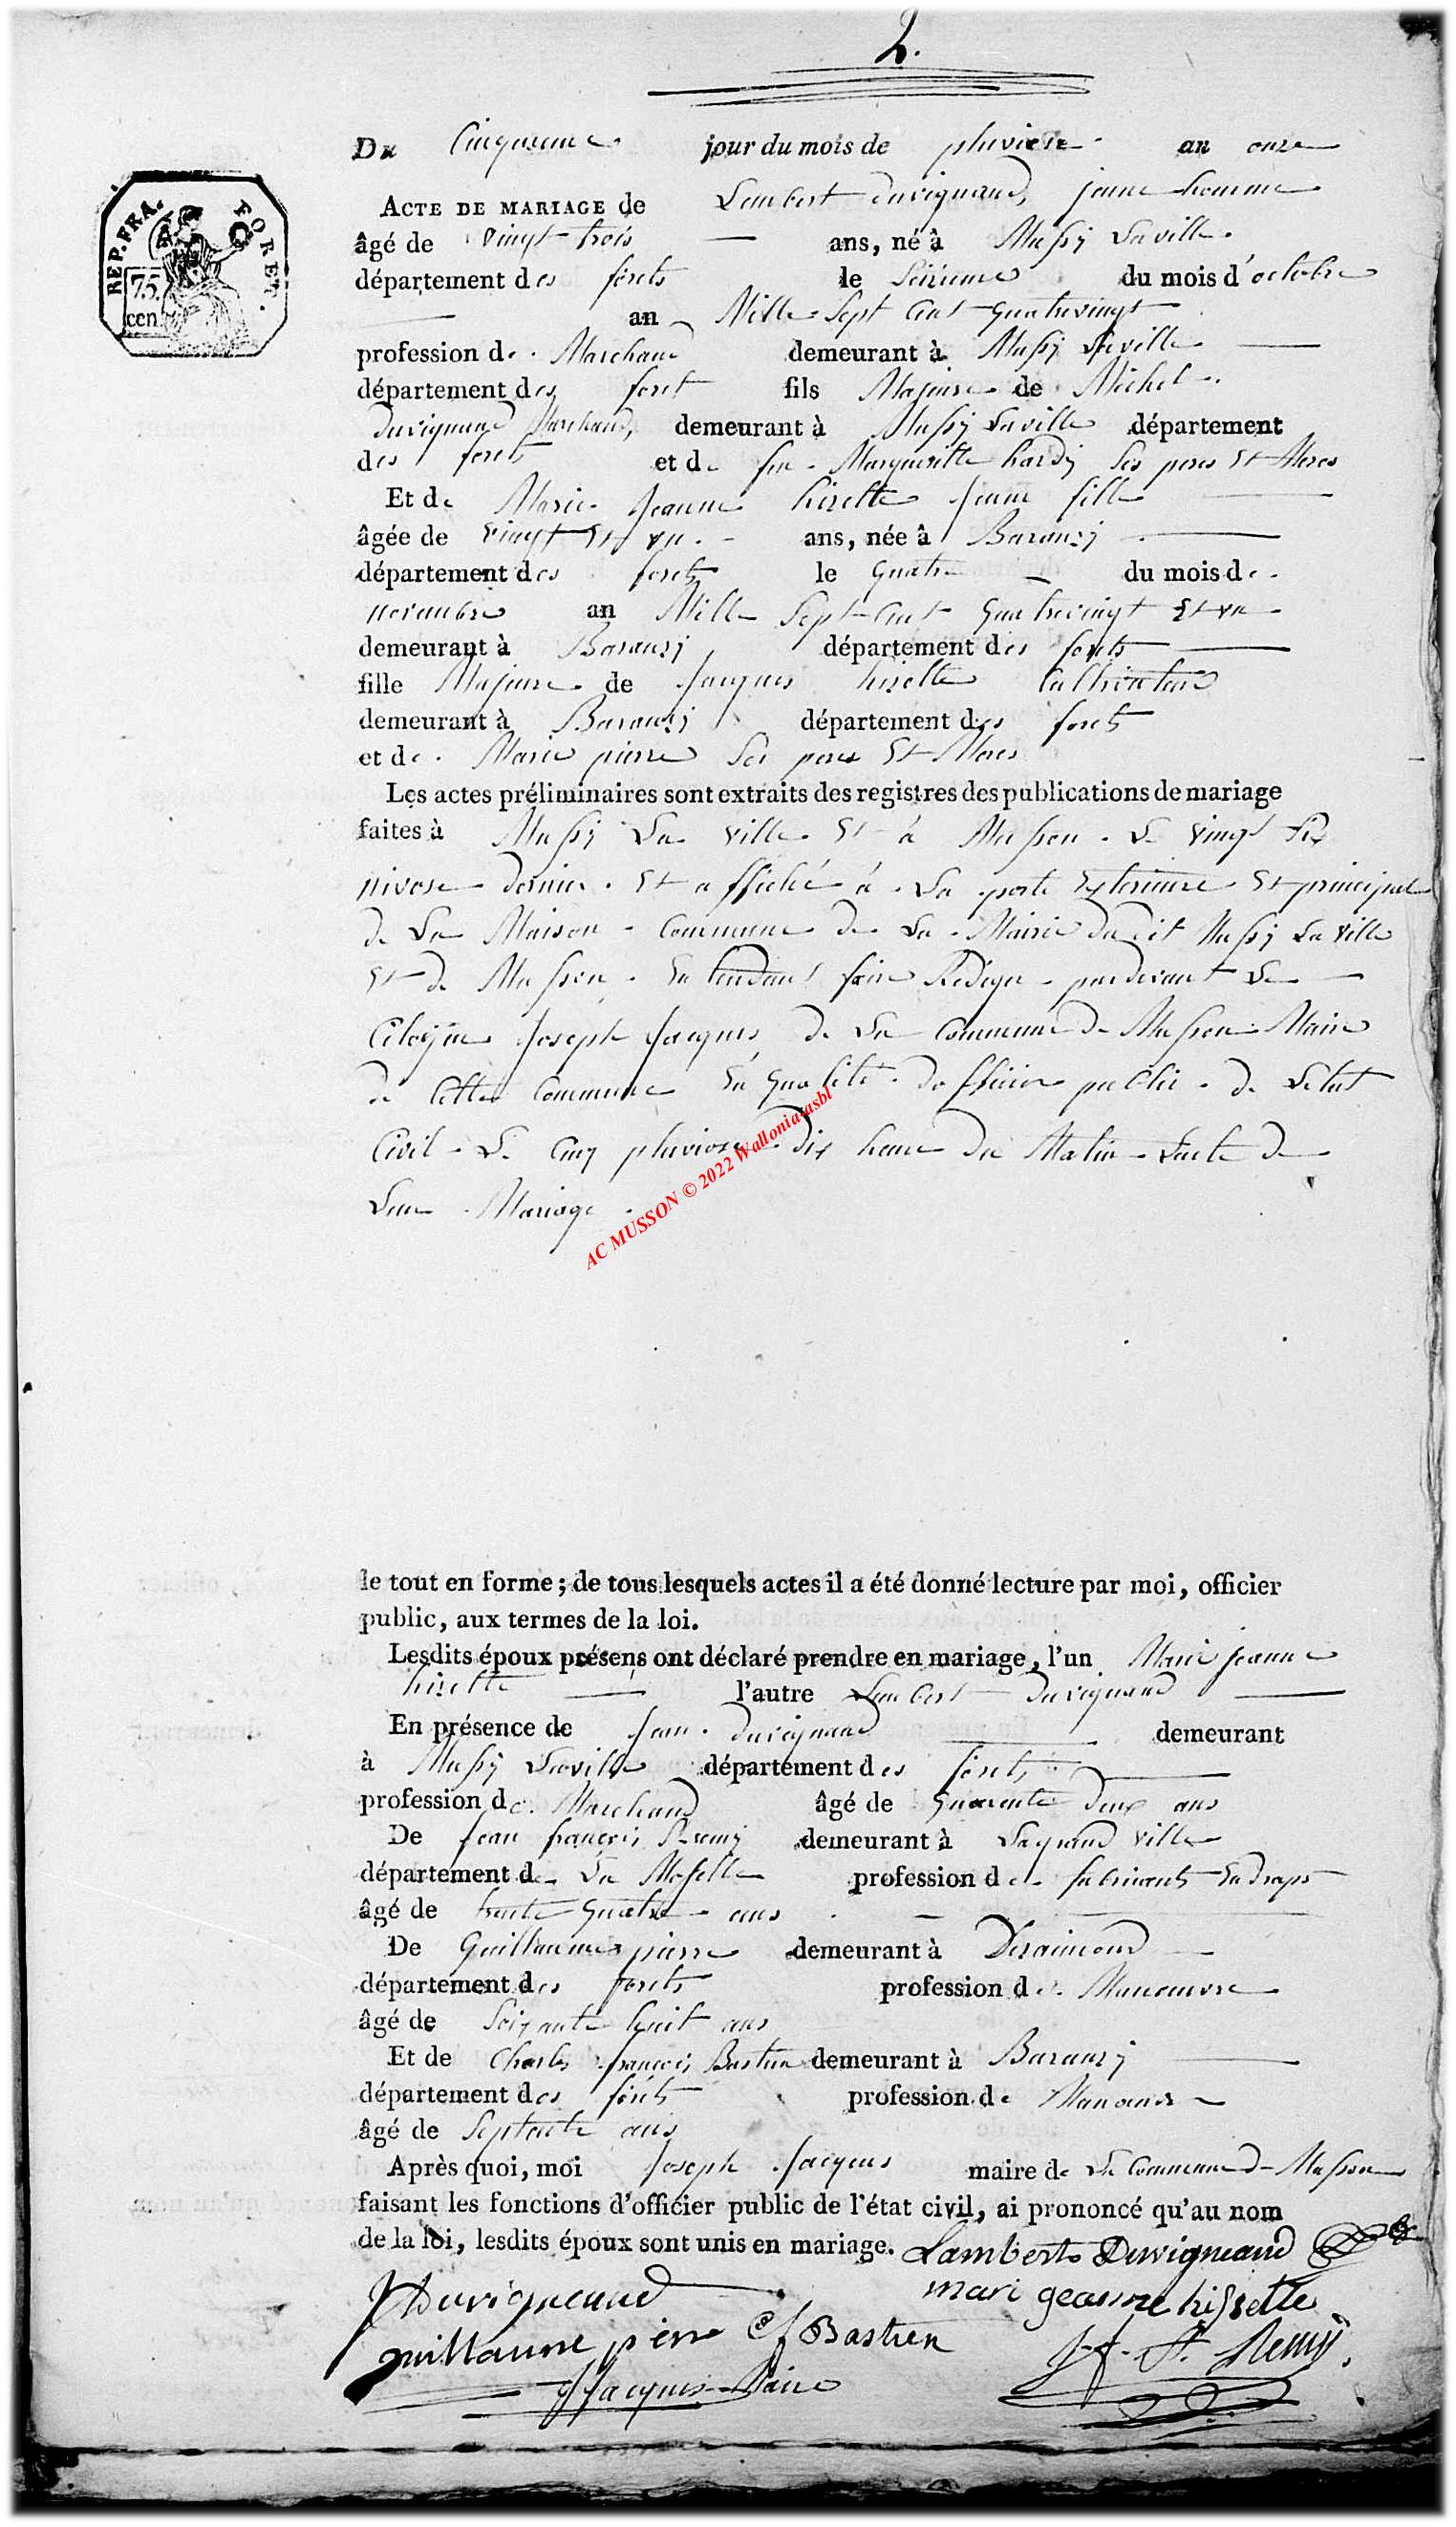 2.
Du Cinquieme jour du mois de pluviose an onze
REP. FRA. FORET.
75. cen
ACTE DE MARIAGE de Lambert duvigneaud, jeune homme
âgé de vingt trois ans, né à Mussÿ Laville.
département des forêts le Seizieme du mois d'octobre
an Mille Sept Cent Quatrevingt
profession de Marchand demeurant à Mussÿ Laville
département des foret fils Majeure de Michel
Duvigneaud Marchand, demeurant à Mussÿ Laville département
des forets et de feu Margueritte hardÿ Ses peres Et Meres
Et de Marie Jeanne hizette Jeune fille
âgée de vingt Et un ans, née à Baranzÿ
département des forets le Quatre du mois de
novembre an Mille Sept Cent Quatrevingt Et un
demeurant à Baranzÿ département des forets
fille Majeure de Jacques hizette Cultivateur
demeurant à Baranzÿ département des forets
et de Marie pierre Ses peres Et Meres
Les actes préliminaires sont extraits des registres des publications de mariage
faites à Mussÿ La ville Et à Musson Le vingt Six
nivose dernier. Et affiché à La porte Exterieure Et principal
de La Maison Commune de La Mairie dudit Mussÿ La Ville
Et de Musson. Entendant faire Rédiger pardevant Le
Citoÿen Joseph Jacques de La Commune de Musson Maire
de Cette Commune En Qualité dofficier public de Letat
Civil Le Cinq pluviose dix heure du Matin Lacte de
Leur Mariage.
AC MUSSON © 2022 Wallonia asbl
le tout en forme; de tous lesquels actes il a été donné lecture par moi, officier
public, aux termes de la loi.
Lesdits époux présens ont déclaré prendre en mariage, l'un Marie Jeanne
hizette l'autre Lambert Duvigneaud
En présence de Jean Duvigneaud demeurant
à Mussÿ Laville département des forets
profession de Marchand âgé de Quarente Deux ans
De Jean françois St remÿ demeurant à Lagrand ville
département de La Moselle profession de fabricant En draps
âgé de trente Quatre ans
De Guillaume pierre demeurant à
département des forets profession de Manoeuvre
âgé de Soixante huit ans
Et de Charles françois Bastien demeurant à Baranzÿ
département des forêts profession de
âgé de Septante ans
Après quoi, moi Joseph Jacques maire de La Commune de Musson
faisant les fonctions d'officier public de l'état civil, ai prononcé qu'au nom
de la loi, lesdits époux sont unis en mariage. Lambert Duvigneaud
J Duvigneaud mari geanne hissette
guillaume pierre C f Bastien J. f. St. Remÿ.
J Jacques Maire